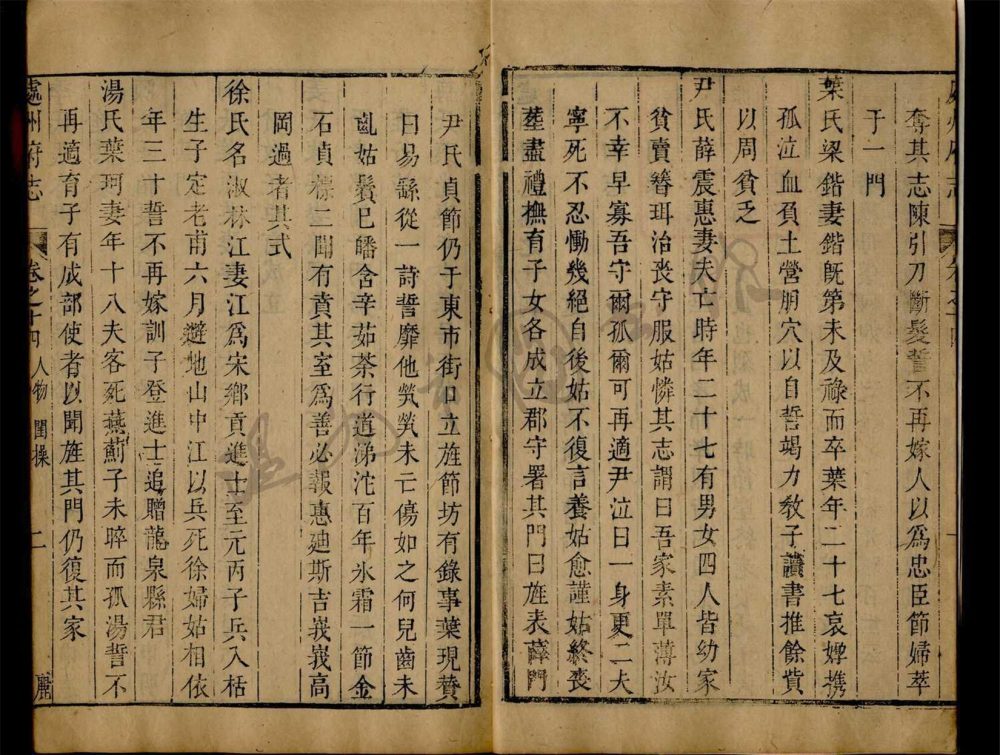 奪其志陳引刀斷髮誓不再嫁人以為忠臣節婦萃
于一門
葉氏梁鍇妻鍇旣第未及祿而卒葉年二十七哀媂携
孤泣血負土營朋穴以自誓竭力敎子讀書推餘貲
以周貧乏
尹氏薛震惠妻夫亡時年二十七有男女四人皆幼家
貧賣簪珥治丧守服姑憐其志謂曰吾家素單薄汝
不幸早寡吾守爾孤爾可再適尹泣曰一身更二夫
寧死不忍慟幾絕自後姑不復言養姑愈謹姑終丧
塟盡禮撫育子女各成立郡守署其門曰旌表薛門
尹氏貞節仍于東市街口立旌節坊有錄事葉現賛
曰易繇從一詩誓靡他煢煢未亡傷如之何兒齒未
齓姑鬢巳皤含辛茹荼行道涕沱百年氷霜一節金
石貞標二聞有賁其室為善必報惠廸斯吉峩峩高
岡過者其式
徐氏名淑林江妻江為宋鄉貢進士至元丙子兵入栝
生子定老甫六月避地山中江以兵死徐婦姑相依
年三十誓不再嫁訓子登進士追贈龍泉縣君
湯氏葉珂妻年十八夫客死燕薊子未晬而孤湯誓不
再適育子有成部使者以聞旌其門仍復其家
處州府志
卷之十四
人物 閨操
二